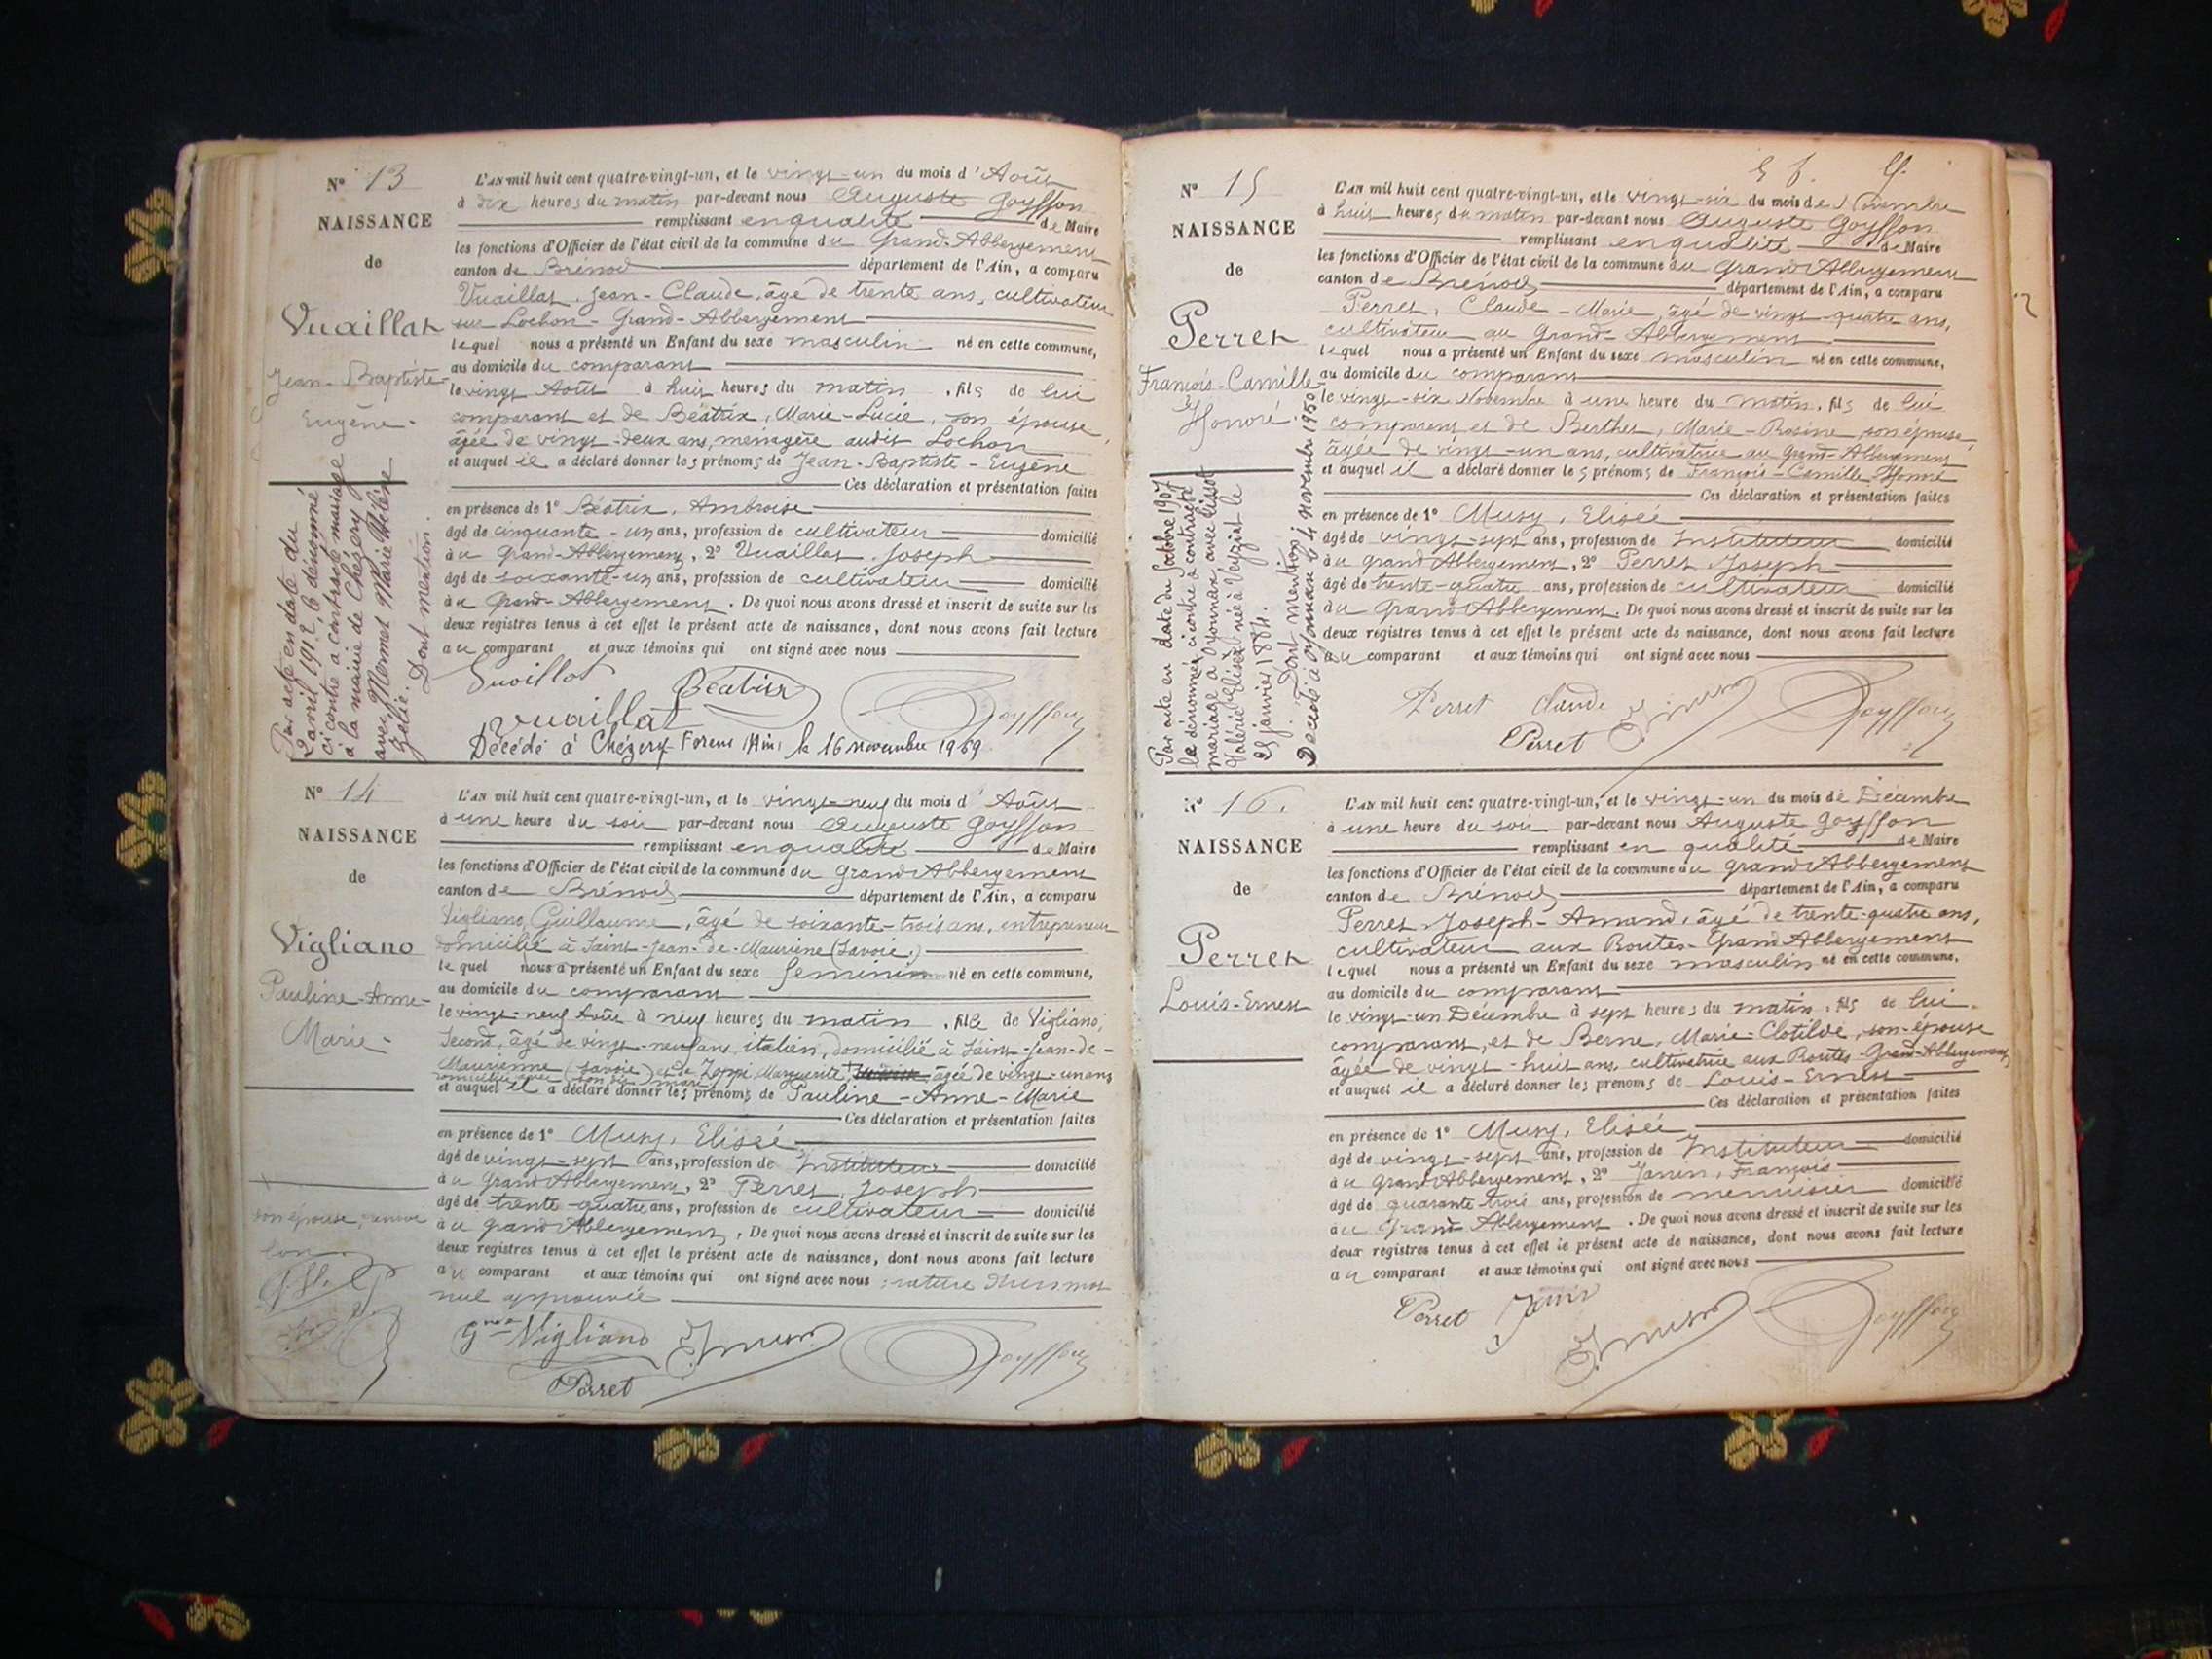 N° 13
NAISSANCE
de
Vuaillat
Jean-Baptiste-
Eugène.
Par acte en date du
2 avril 1912, le dénommé
ci contre a contracté mariage
à la mairie de Chézery
avec Mermet Marie Hélène
Zélie.
Dont mention.
L'AN mil huit cent quatre-vingt-un, et le vingt-un du mois d'Août
à dix heures du matin par-devant nous Auguste Goyffon
remplissant en qualité de Maire
les fonctions d'Officier de l'état civil de la commune du Grand-Abbergement
canton de Brénod département de l'Ain, a comparu
Vuaillat, Jean-Claude, âgé de trente ans, cultivateur
sur Lochon-Grand-Abbergement
lequel nous a présenté un Enfant du sexe masculin né en cette commune,
au domicile du comparant
le vingt Août à huit heures du matin, fils de lui
comparant et de Béatrix, Marie-Lucie, son épouse,
âgée de vingt-deux ans, ménagère audit Lochon
et auquel il a déclaré donner les prénoms de Jean-Baptiste-Eugène
Ces déclaration et présentation faites
en présence de 1° Béatrix, Ambroise
âgé de cinquante-un ans, profession de cultivateur domicilié
au Grand-Abbergement, 2° Vuaillat, Joseph
âgé de soixante-un ans, profession de cultivateur domicilié
au Grand-Abbergement. De quoi nous avons dressé et inscrit de suite sur les
deux registres tenus à cet effet le présent acte de naissance, dont nous avons fait lecture
au comparant et aux témoins qui ont signé avec nous
Vuaillat Béatrix
Vuaillat Goyffon
Décédé à Chézery-Forens (Ain) le 16 novembre 1969
N° 14
NAISSANCE
de
Vigliano
Pauline-Anne-
Marie-
son épouse,
L'AN mil huit cent quatre-vingt-un, et le vingt-neuf du mois d'Août
à une heure du soir par-devant nous Auguste Goyffon
remplissant en qualité de Maire
les fonctions d'Officier de l'état civil de la commune du Grand Abbergement
canton de Brénod département de l'Ain, a comparu
Vigliano, Guillaume, âgé de soixante-trois ans, entrepreneur
domicilié à Saint-Jean-de-Maurienne (Savoie)
lequel nous a présenté un Enfant du sexe féminin né en cette commune,
au domicile du comparant
le vingt-neuf Août à neuf heures du matin, fille de Vigliano,
Second, âgé de vingt-neuf ans, italien, domicilié à Saint-Jean-de-
Maurienne (Savoie) et de Zoppi Marguerite, âgée de vingt-un ans
domiciliée avec son dit mari
et auquel il a déclaré donner les prénoms de Pauline-Anne-Marie
Ces déclaration et présentation faites
en présence de 1° Musy, Elisée
âgé de vingt-sept ans, profession de Instituteur domicilié
au Grand Abbergement, 2° Perret, Joseph
âgé de trente-quatre ans, profession de cultivateur domicilié
au Grand Abbergement. De quoi nous avons dressé et inscrit de suite sur les
deux registres tenus à cet effet le présent acte de naissance, dont nous avons fait lecture
au comparant et aux témoins qui ont signé avec nous : rature d'un mot
nul approuvée
Vigliano Emusy Goyffon
Perret
N° 15
NAISSANCE
de
Perret
François-Camille-
Honoré
Par acte en date du 5 octobre 1907
le dénommé ci contre a contracté
mariage à Oyonnax avec Lissot
Valérie Elisa née à Veyziat le
25 janvier 1884.
Dont mention
Décédé à Oyonnax le 4 novembre 1950
L'AN mil huit cent quatre-vingt-un, et le vingt-six du mois de Novembre
à huit heures du matin par-devant nous Auguste Goyffon
remplissant en qualité de Maire
les fonctions d'Officier de l'état civil de la commune du Grand Abbergement
canton de Brénod département de l'Ain, a comparu
Perret, Claude-Marie, âgé de vingt-quatre ans,
cultivateur au Grand-Abbergement
lequel nous a présenté un Enfant du sexe masculin né en cette commune,
au domicile du comparant
le vingt-six Novembre à une heure du matin, fils de lui
comparant et de Berthet, Marie-Rosine son épouse,
âgée de vingt-un ans, cultivatrice au Grand-Abbergement
et auquel il a déclaré donner les prénoms de François-Camille-Honoré
Ces déclaration et présentation faites
en présence de 1° Musy, Elisée
âgé de vingt-sept ans, profession de Instituteur domicilié
au Grand Abbergement, 2° Perret Joseph
âgé de trente-quatre ans, profession de cultivateur domicilié
au Grand Abbergement. De quoi nous avons dressé et inscrit de suite sur les
deux registres tenus à cet effet le présent acte de naissance, dont nous avons fait lecture
au comparant et aux témoins qui ont signé avec nous
Perret Claude Emusy Goyffon
Perret
N° 16.
NAISSANCE
de
Perret
Louis-Ernest
L'AN mil huit cent quatre-vingt-un, et le vingt-un du mois de Décembre
à une heure du soir par-devant nous Auguste Goyffon
remplissant en qualité de Maire
les fonctions d'Officier de l'état civil de la commune du Grand Abbergement
canton de Brénod département de l'Ain, a comparu
Perret Joseph-Amand, âgé de trente-quatre ans,
cultivateur aux Routes-Grand Abbergement
lequel nous a présenté un Enfant du sexe masculin né en cette commune,
au domicile du comparant
le vingt-un Décembre à sept heures du matin, fils de lui
comparant, et de Berne, Marie-Clotilde, son épouse
âgée de vingt-huit ans, cultivatrice aux Routes-Grand-Abbergement
et auquel il a déclaré donner les prénoms de Louis-Ernest
Ces déclaration et présentation faites
en présence de 1° Musy, Elisée
âgé de vingt-sept ans, profession de Instituteur domicilié
au Grand Abbergement, 2° Janin, François
âgé de quarante trois ans, profession de menuisier domicilié
au Grand Abbergement. De quoi nous avons dressé et inscrit de suite sur les
deux registres tenus à cet effet le présent acte de naissance, dont nous avons fait lecture
au comparant et aux témoins qui ont signé avec nous
Perret Janin
Emusy Goyffon